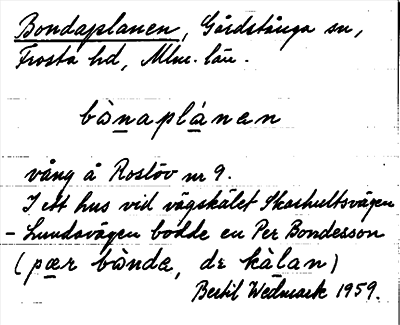 Bondaplanen, Gårdstånga sn,
Frosta hd, Mlm. län.
bànaplánen
vång å Rostöv nr 9.
I ett hus vid vägskälet Skarhultsvägen
- Lundavägen bodde en Per Bondesson
(pær bànde, de kàlan)
Bertil Wedmark 1959.